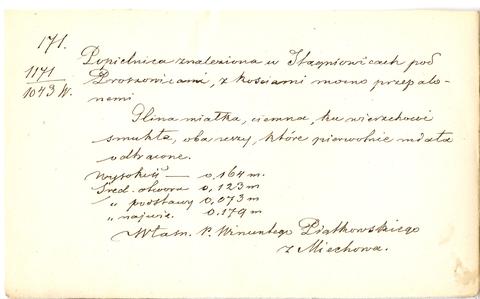 171.
1171
1043 W.
Popielnica znaleziona w Stogniowicach pod
Proszowicami, z kościami mocno przepalo-
nemi
Glina miałka, ciemna, ku wierzchowi
smukła, oba uszy, które pierwotnie miała
odtrącone.
Wysokość — 0,164 m.
Śred. otworu 0,123 m
" podstawy 0,073 m
" najwię. 0.179 m
Własn. P. Wincentego Piątkowskiego
z Miechowa.